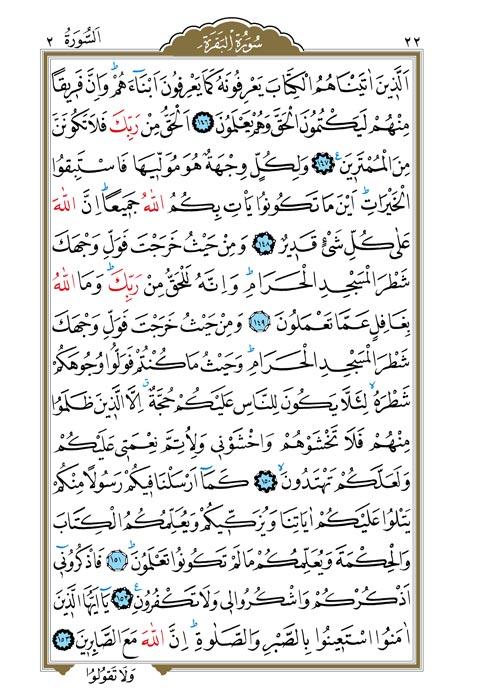 ٢٢ سُورَةُ الْبَقَرَةِ اَلسُّورَةُ ٢
اَلَّذ۪ينَ اٰتَيْنَاهُمُ الْكِتَابَ يَعْرِفُونَهُ كَمَا يَعْرِفُونَ اَبْنَٓاءَهُمْۜ وَاِنَّ فَر۪يقًا
مِنْهُمْ لَيَكْتُمُونَ الْحَقَّ وَهُمْ يَعْلَمُونَ ﴿١٤٦﴾ اَلْحَقُّ مِنْ رَبِّكَ فَلَا تَكُونَنَّ
مِنَ الْمُمْتَر۪ينَ۟ ﴿١٤٧﴾ وَلِكُلٍّ وِجْهَةٌ هُوَ مُوَلّ۪يهَا فَاسْتَبِقُوا
الْخَيْرَاتِۜ اَيْنَ مَا تَكُونُوا يَأْتِ بِكُمُ اللّٰهُ جَم۪يعًاۜ اِنَّ اللّٰهَ
عَلٰى كُلِّ شَيْءٍ قَد۪يرٌ ﴿١٤٨﴾ وَمِنْ حَيْثُ خَرَجْتَ فَوَلِّ وَجْهَكَ
شَطْرَ الْمَسْجِدِ الْحَرَامِۜ وَاِنَّهُ لَلْحَقُّ مِنْ رَبِّكَۜ وَمَا اللّٰهُ
بِغَافِلٍ عَمَّا تَعْمَلُونَ ﴿١٤٩﴾ وَمِنْ حَيْثُ خَرَجْتَ فَوَلِّ وَجْهَكَ
شَطْرَ الْمَسْجِدِ الْحَرَامِۜ وَحَيْثُ مَا كُنْتُمْ فَوَلُّوا وُجُوهَكُمْ
شَطْرَهُۙ لِئَلَّا يَكُونَ لِلنَّاسِ عَلَيْكُمْ حُجَّةٌۗ اِلَّا الَّذ۪ينَ ظَلَمُوا
مِنْهُمْ فَلَا تَخْشَوْهُمْ وَاخْشَوْن۪ي وَلِاُتِمَّ نِعْمَت۪ي عَلَيْكُمْ
وَلَعَلَّكُمْ تَهْتَدُونَۙ ﴿١٥٠﴾ كَمَٓا اَرْسَلْنَا ف۪يكُمْ رَسُولًا مِنْكُمْ
يَتْلُوا عَلَيْكُمْ اٰيَاتِنَا وَيُزَكّ۪يكُمْ وَيُعَلِّمُكُمُ الْكِتَابَ
وَالْحِكْمَةَ وَيُعَلِّمُكُمْ مَا لَمْ تَكُونُوا تَعْلَمُونَۜ ﴿١٥١﴾ فَاذْكُرُون۪ٓي
اَذْكُرْكُمْ وَاشْكُرُوا ل۪ي وَلَا تَكْفُرُونِ۟ ﴿١٥٢﴾ يَٓا اَيُّهَا الَّذ۪ينَ
اٰمَنُوا اسْتَع۪ينُوا بِالصَّبْرِ وَالصَّلٰوةِۜ اِنَّ اللّٰهَ مَعَ الصَّابِر۪ينَ ﴿١٥٣﴾
وَلَا تَقُولُوا